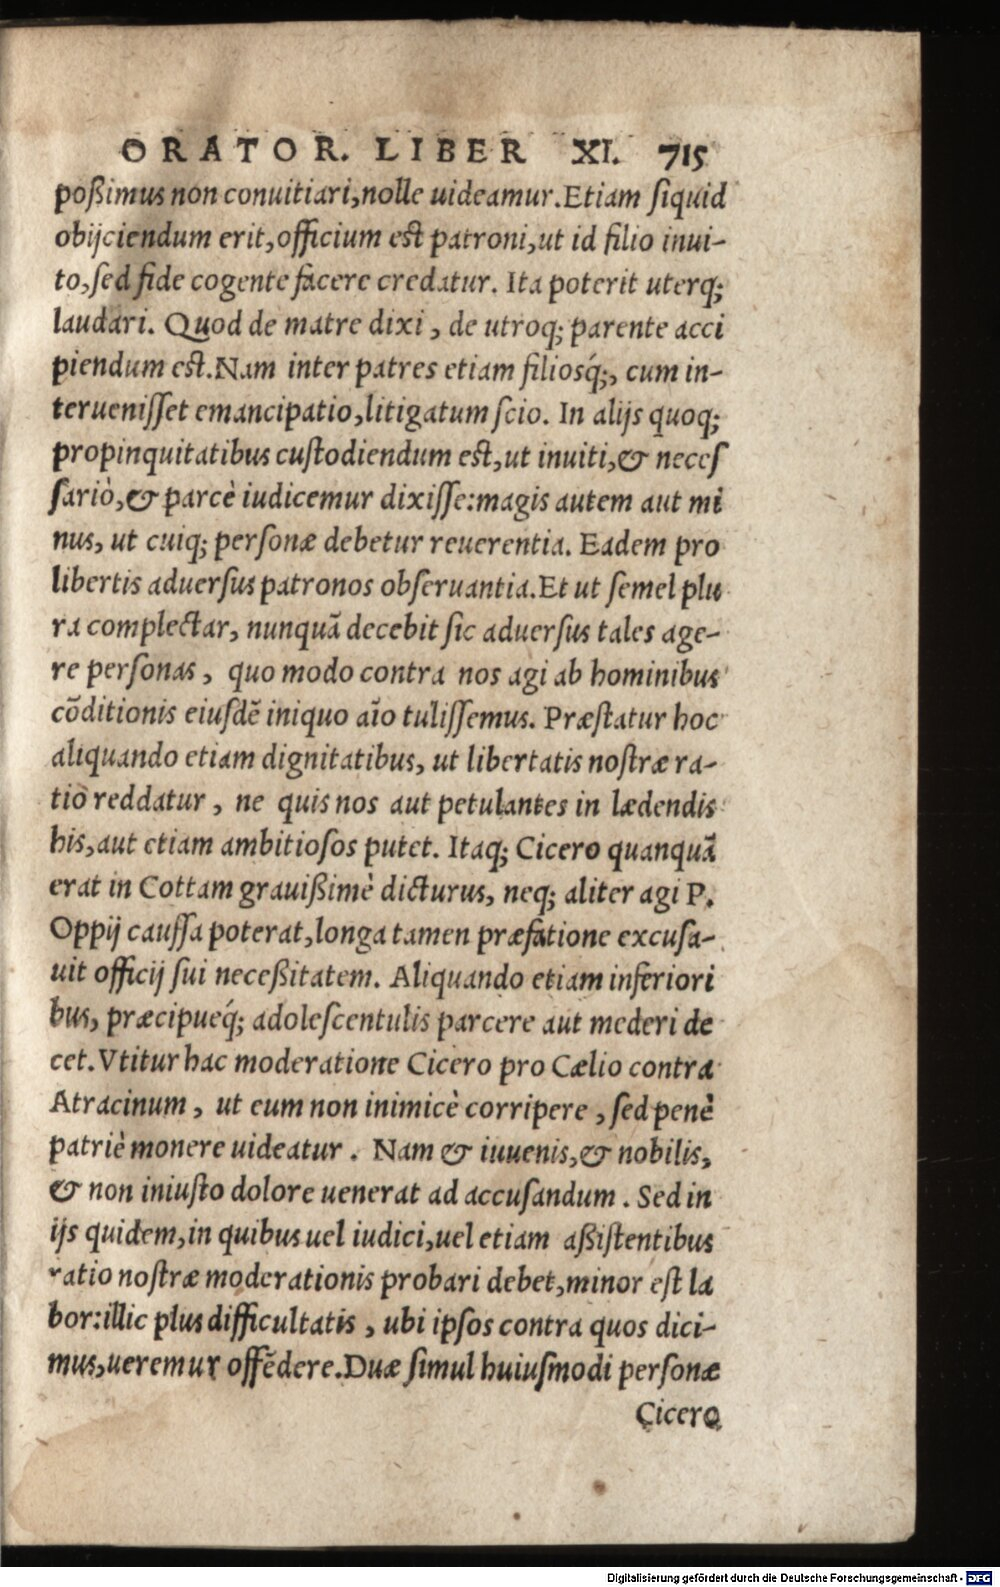 ORATOR. LIBER XI. 715
poßimus non conuitiari, nolle uideamur. Etiam siquid
obijciendum erit, officium est patroni, ut id filio inui-
to, sed fide cogente facere credatur. Ita poterit uterq;
laudari. Quod de matre dixi, de utroq; parente acci
piendum est. Nam inter patres etiam filiosq́;, cum in-
teruenisset emancipatio, litigatum scio. In alijs quoq;
propinquitatibus custodiendum est, ut inuiti, & neces
sariò, & parcè iudicemur dixisse: magis autem aut mi
nus, ut cuiq; personæ debetur reuerentia. Eadem pro
libertis aduersus patronos obseruantia. Et ut semel plu
ra complectar, nunquã decebit sic aduersus tales age-
re personas, quo modo contra nos agi ab hominibus
cõditionis eiusdẽ iniquo aĩo tulissemus. Præstatur hoc
aliquando etiam dignitatibus, ut libertatis nostræ ra-
tio reddatur, ne quis nos aut petulantes in lædendis
his, aut etiam ambitiosos putet. Itaq; Cicero quanquã
erat in Cottam grauißimè dicturus, neq; aliter agi P.
Oppij caussa poterat, longa tamen præfatione excusa-
uit officij sui neceßitatem. Aliquando etiam inferiori
bus, præcipueq́; adolescentulis parcere aut mederi de
cet. Vtitur hac moderatione Cicero pro Cælio contra
Atracinum, ut eum non inimicè corripere, sed penè
patriè monere uideatur. Nam & iuuenis, & nobilis,
& non iniusto dolore uenerat ad accusandum. Sed in
ijs quidem, in quibus uel iudici, uel etiam aßistentibus
ratio nostræ moderationis probari debet, minor est la
bor: illic plus difficultatis, ubi ipsos contra quos dici-
mus, ueremur offẽdere. Duæ simul huiusmodi personæ
Cicero
Digitalisierung gefördert durch die Deutsche Forschungsgemeinschaft - DFG